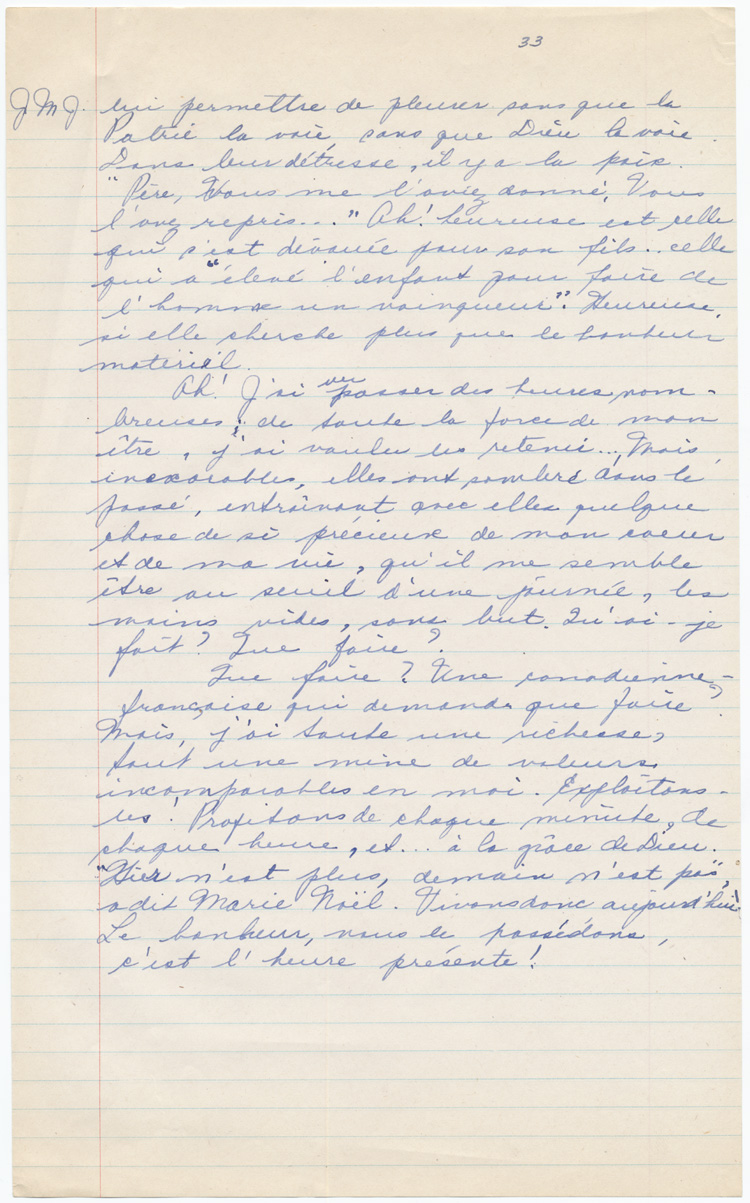 33
J.M.J. lui permettre de pleurer sans que la
Patrie la voie, sans que Dieu la voie.
Dans leur détresse, il y a la paix.
"Père, Vous me l'aviez donné, Vous
l'avez repris..." Ah! heureuse est celle
qui s'est dévouée pour son fils... celle
qui a "élevé l'enfant pour faire de
l'homme un vainqueur". Heureuse,
si elle cherche plus que le bonheur
matériel.
Ah! J'ai vu passer des heures nom-
breuses; de toute la force de mon
être, j'ai voulu les retenir... Mais,
inexorables, elles ont sombré dans le
passé, entraînant avec elles quelque
chose de si précieux de mon coeur
et de ma vie, qu'il me semble
être au seuil d'une journée, les
mains vides, sans but. Qu'ai-je
fait? Que faire?
Que faire? Une canadienne-
française qui demande que faire?
Mais, j'ai toute une richesse,
tout une mine de valeurs
incomparables en moi. Exploitons-
les! Profitons de chaque minute, de
chaque heure, et... à la grâce de Dieu.
"Hier n'est plus, demain n'est pas",
a dit Marie Noël. Vivons donc aujourd'hui.
Le bonheur, nous le possédons,
c'est l'heure présente!